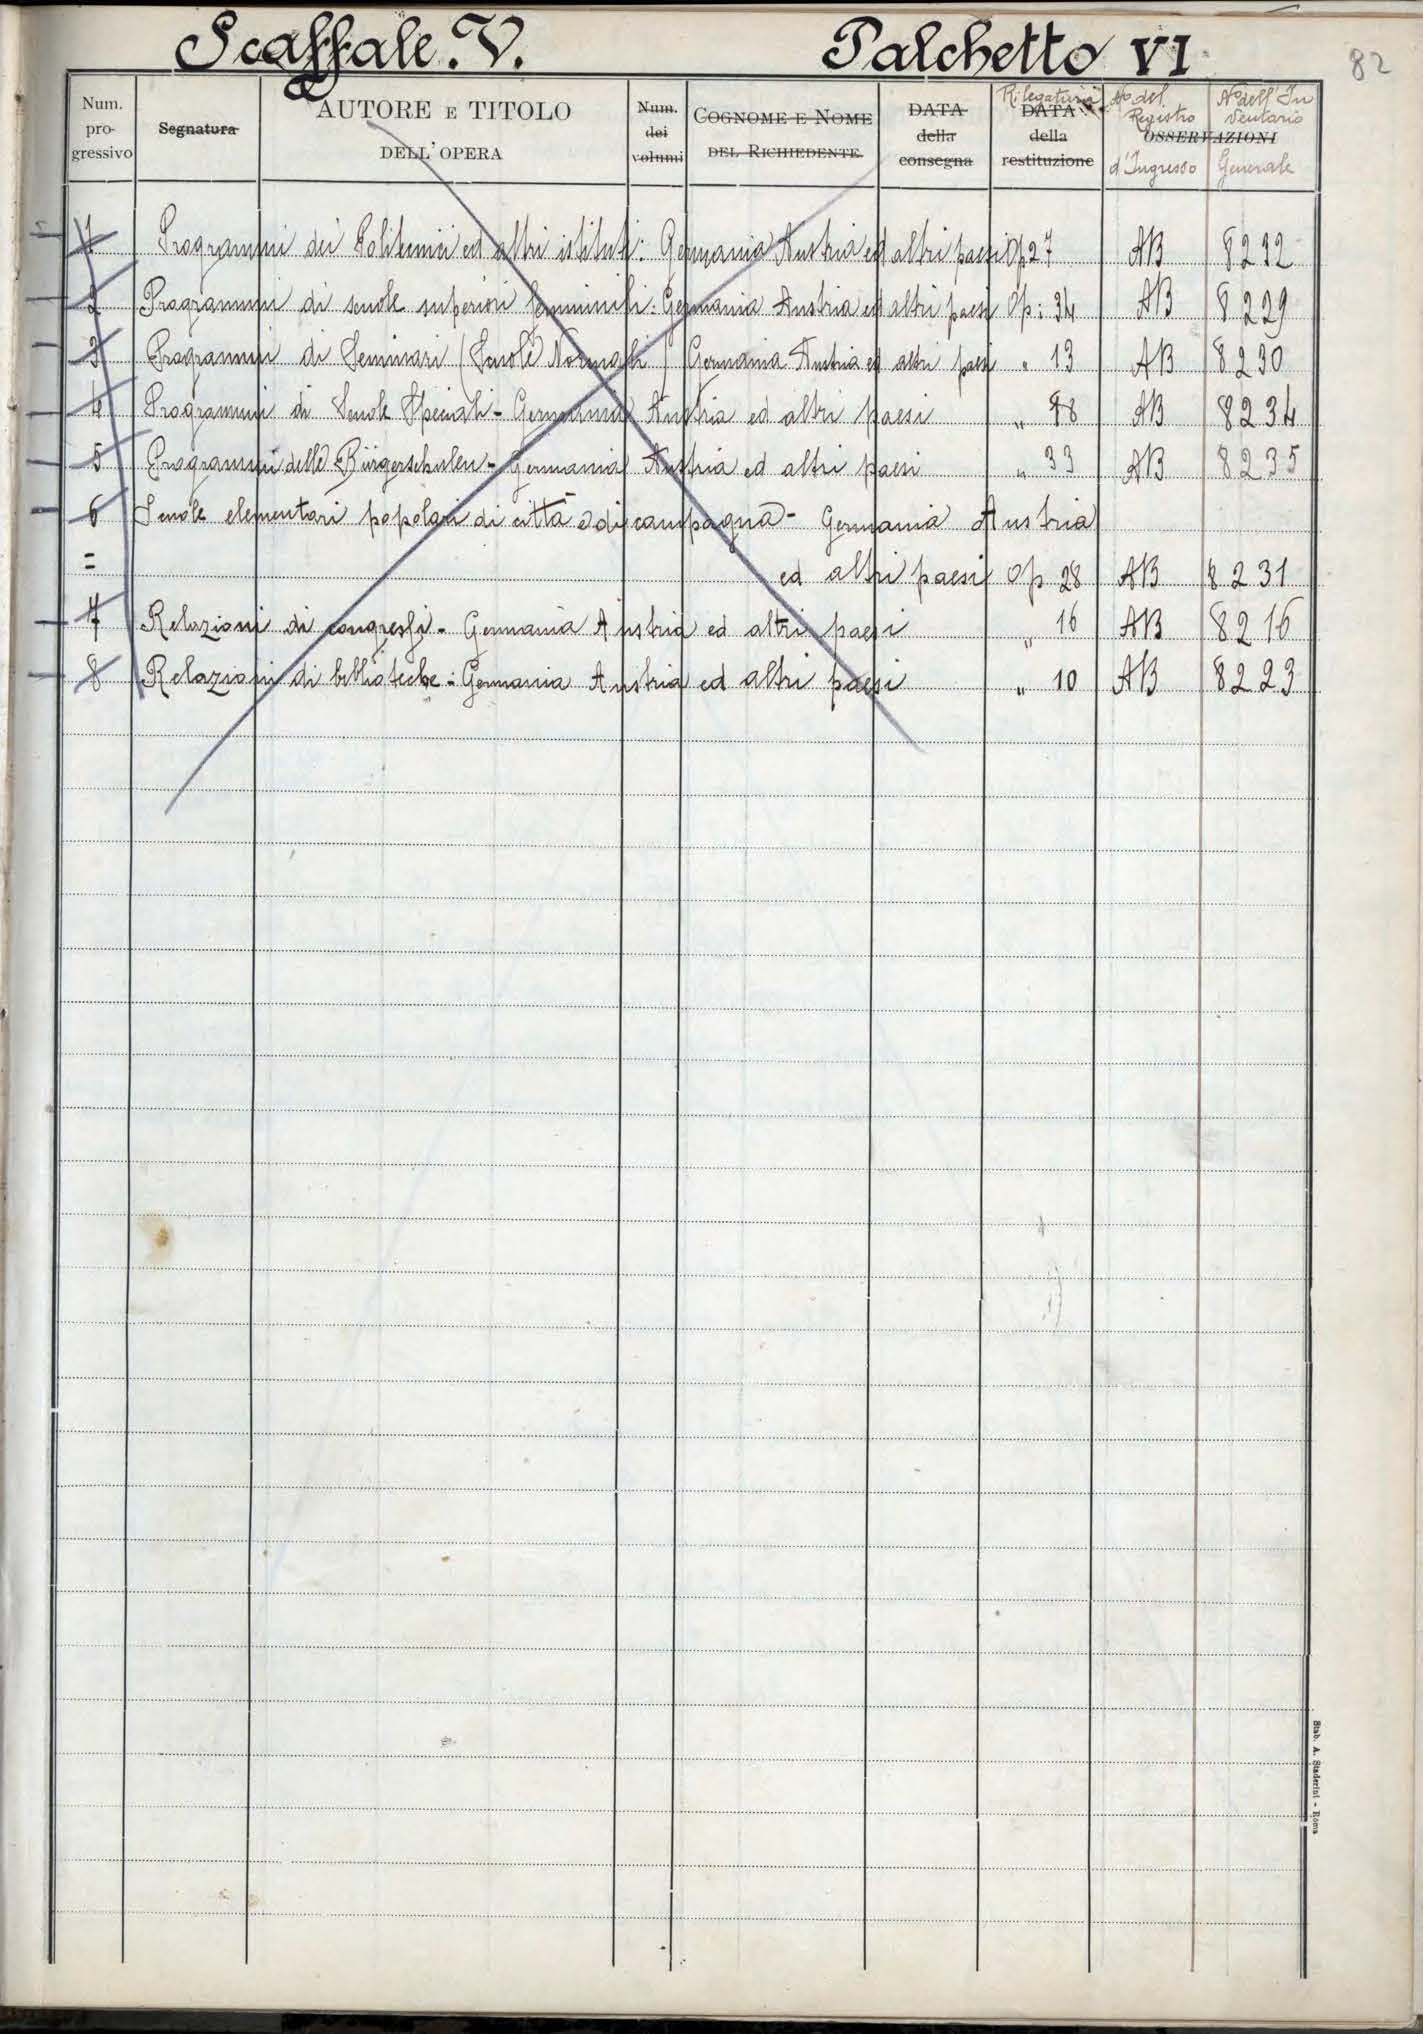 Scaffale. V. Palchetto VI 82
Num. progressivo Segnatura AUTORE E TITOLO DELL'OPERA Num. dei volumi COGNOME E NOME DEL RICHIEDENTE DATA della consegna Rilegatura DATA della restituzione No del Registro d'Ingresso OSSERVAZIONI No dell'Inventario Generale
1 Programmi dei Politecnici ed altri istituti: Germania Austria ed altri paesi Op 27 AB 8232
2 Programmi di scuole superiori femminili: Germania Austria ed altri paesi Op: 34 AB 8229
3 Programmi di Seminari (Scuole Normali) Germania Austria ed altri paesi " 13 AB 8230
4 Programmi di Scuole Speciali - Germania Austria ed altri paesi " 88 AB 8234
5 Programmi delle Bürgerschulen - Germania Austria ed altri paesi " 33 AB 8235
6 Scuole elementari popolari di città e di campagna - Germania Austria
= ed altri paesi Op 28 AB 8231
7 Relazioni di congressi - Germania Austria ed altri paesi " 16 AB 8216
8 Relazioni di biblioteche: Germania Austria ed altri paesi " 10 AB 8223
Stab. A. Staderini - Roma